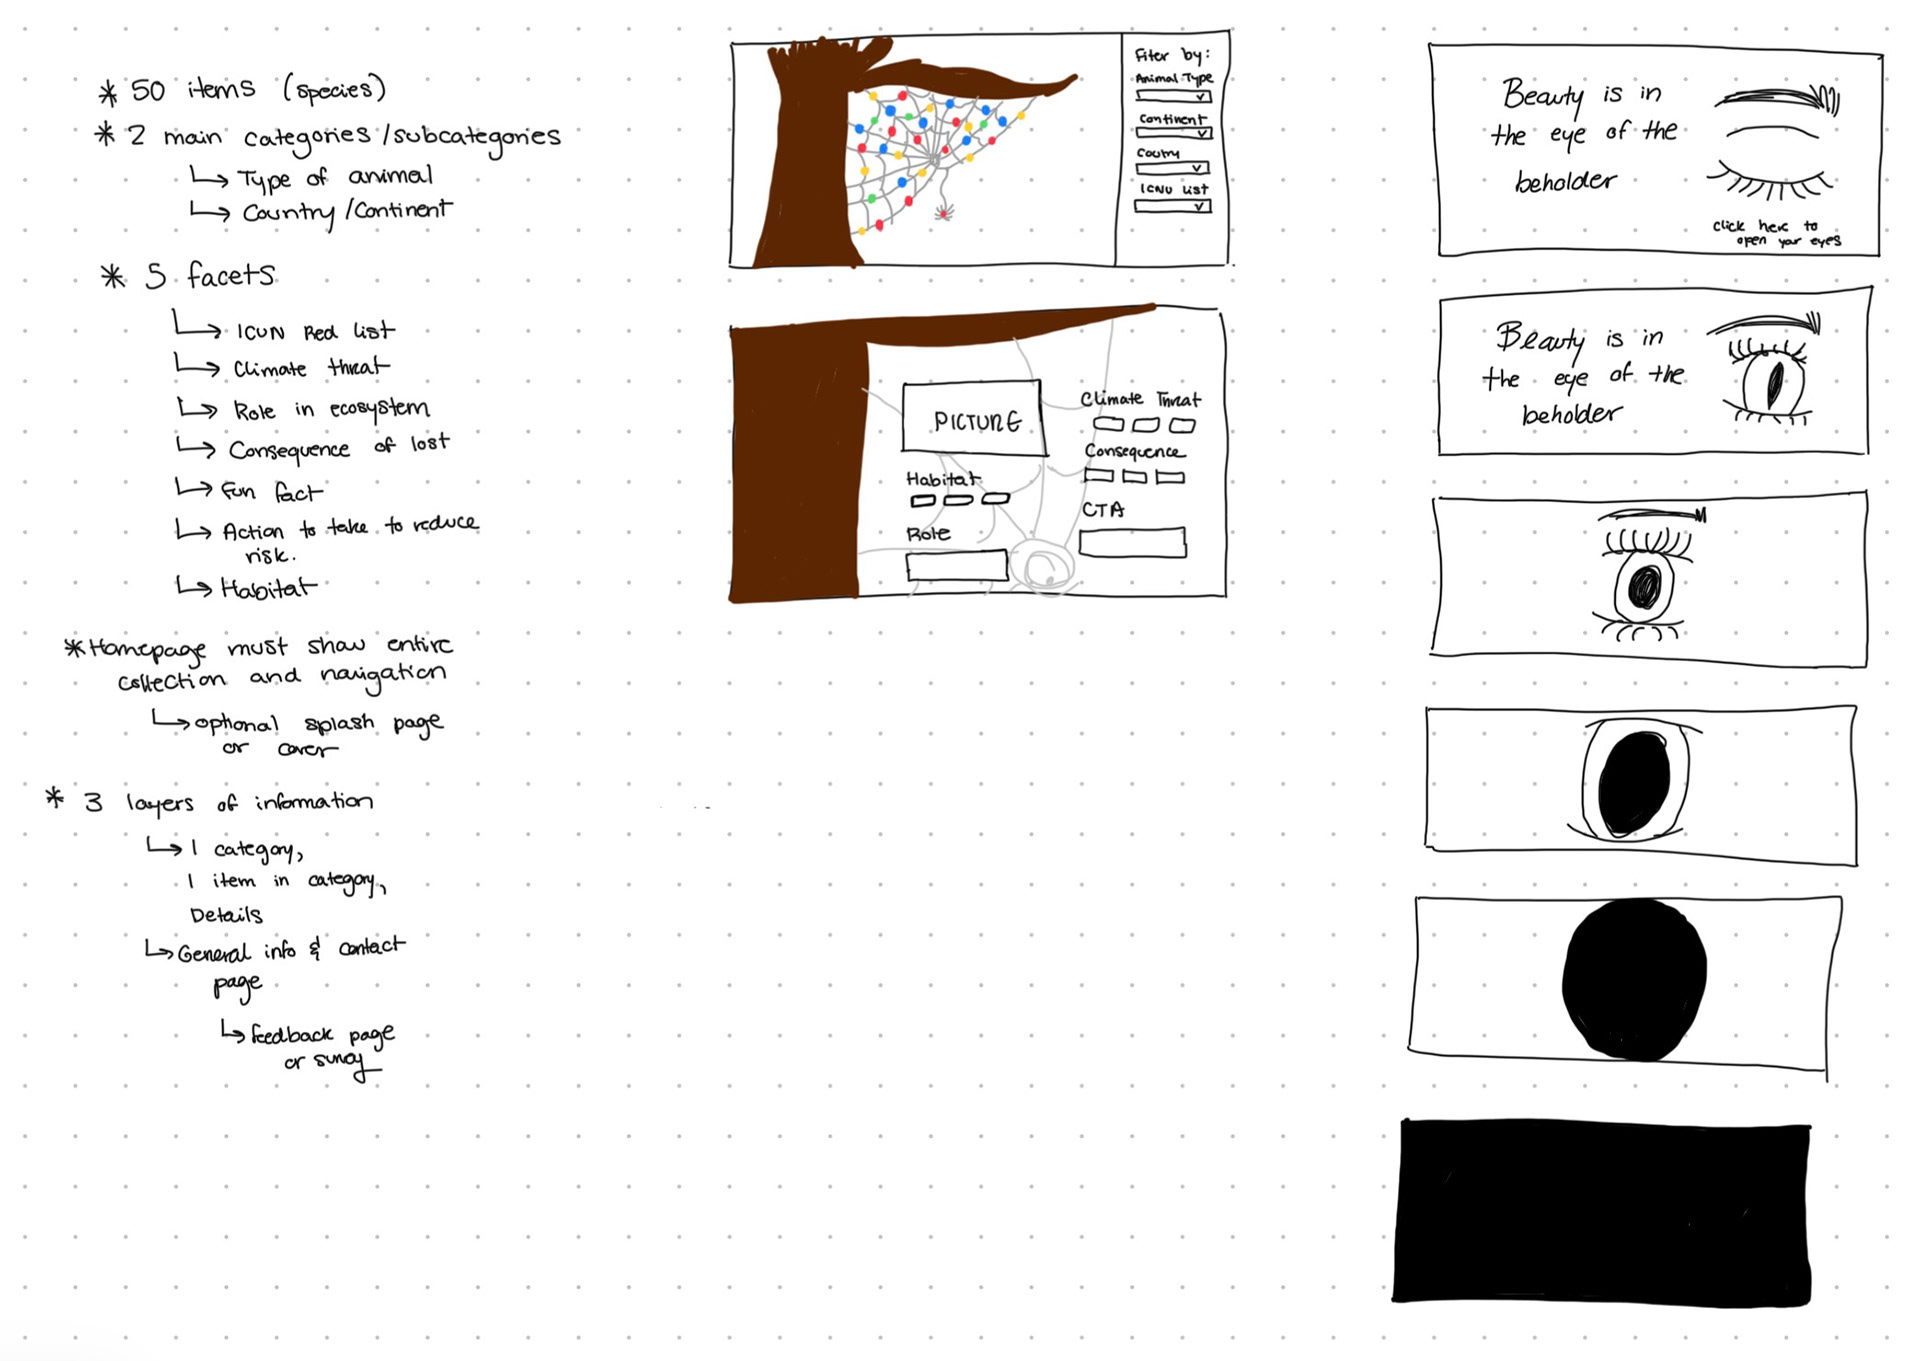 * 50 items (species)
* 2 main categories/subcategories
↳ Type of animal
↳ Country/Continent
* 5 facets
↳ ICUN Red list
↳ Climate threat
↳ Role in ecosystem
↳ Consequence of lost
↳ Fun fact
↳ Action to take to reduce
risk.
↳ Habitat
* Homepage must show entire
collection and navigation
↳ optional splash page
or cover
* 3 layers of information
↳ 1 category,
1 item in category,
Details
↳ General info & contact
page
↳ feedback page
or survey
Filter by:
Animal Type
Continent
Country
ICNU List
PICTURE
Habitat
Role
Climate Threat
Consequence
CTA
Beauty is in
the eye of the
beholder
click here to
open your eyes
Beauty is in
the eye of the
beholder